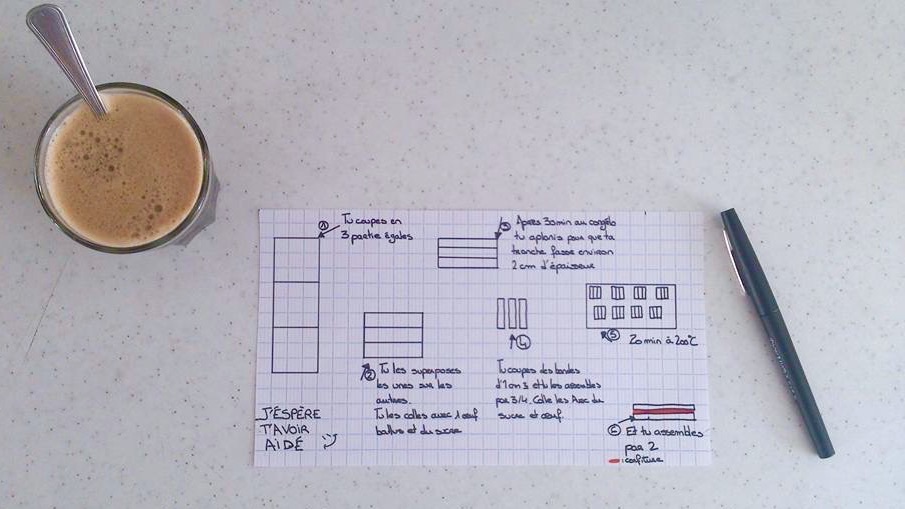 1 Tu coupes en
3 partie égales
2 Tu les superposes
les unes sur les
autres.
Tu les colles avec 1 œuf
battus et du sucre
3 Après 30min au congélo
tu aplanis pour que ta
tranche fasse environ
2 cm d'épaisseur
4
Tu coupes des bandes
et tu les assembles
par 3/4. Colle les Avec du
sucre et œuf.
5 20 min à 200°C
6 Et tu assembles
par 2
: confiture
J'ESPÈRE
T'AVOIR
AIDÉ